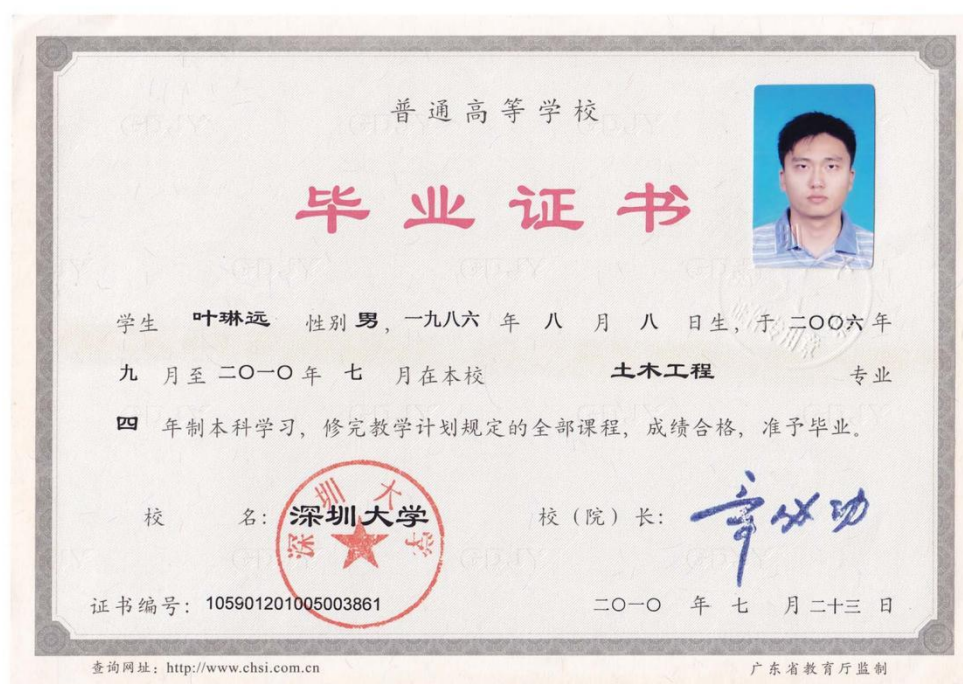 普通高等学校
毕业证书
学生 叶琳远 性别 男，一九八六 年 八 月 八 日生，于 二〇〇六 年
九 月至 二〇一〇 年 七 月在本校 土木工程 专业
四 年制本科学习，修完教学计划规定的全部课程，成绩合格，准予毕业。
深圳大学
校 名：深圳大学 校（院）长：章必功
证书编号：105901201005003861 二〇一〇 年 七 月 二十三 日
查询网址：http://www.chsi.com.cn 广东省教育厅监制